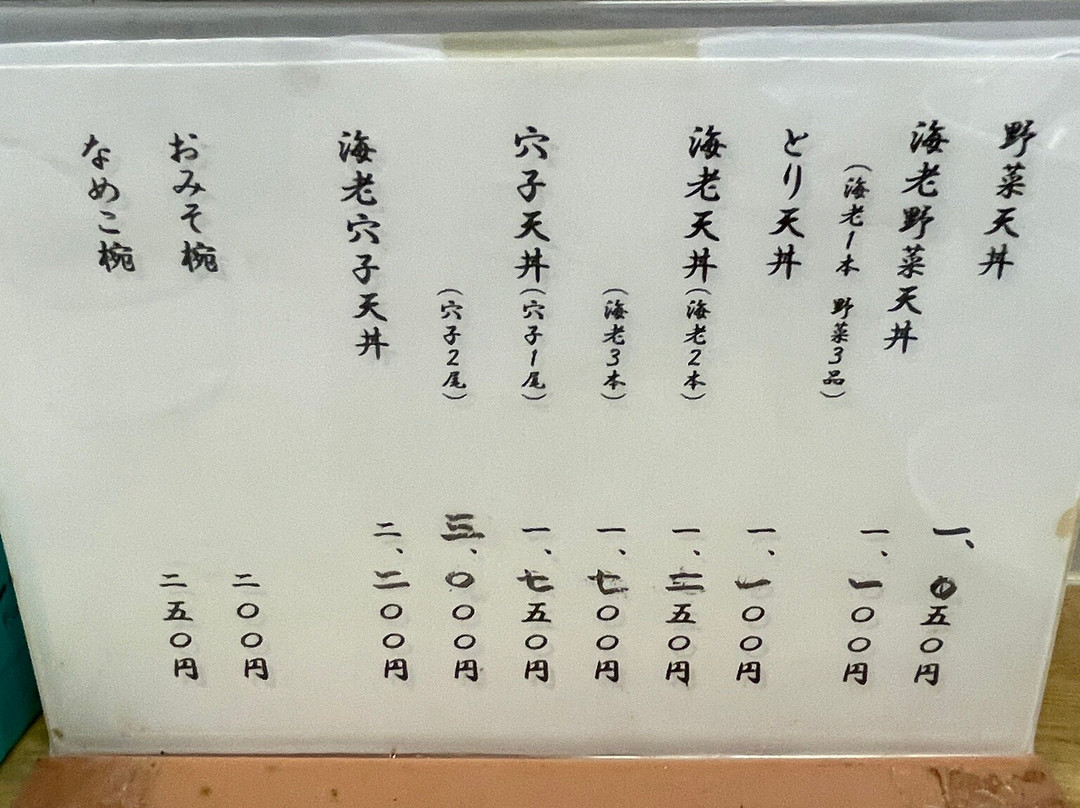 野菜天丼 一、〇五〇円
海老野菜天丼 一、一〇〇円
(海老1本 野菜3品)
とり天丼 一、一〇〇円
海老天丼(海老2本) 一、二五〇円
(海老3本) 一、七〇〇円
穴子天丼(穴子1尾) 一、七五〇円
(穴子2尾) 三、〇〇〇円
海老穴子天丼 二、二〇〇円
おみそ椀 二〇〇円
なめこ椀 二五〇円